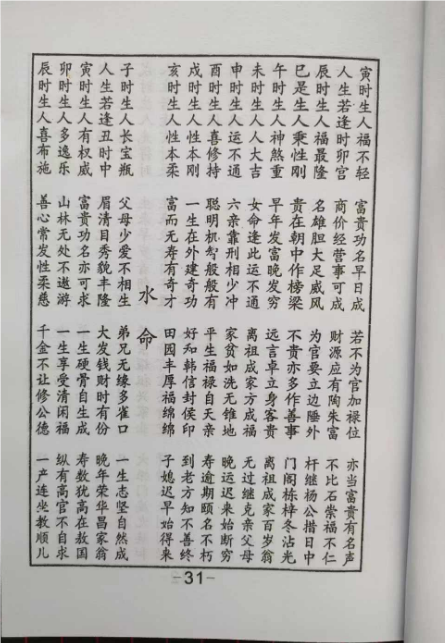 寅时生人福不轻 富贵功名早日成 若不为官加禄位 亦当富贵有名声
人生若逢时卯宫 商价经营事可成 财源应有陶朱富 不比石崇福不仁
辰时生人福最隆 名雄胆大足威风 为官要立边陲外 杆继杨公措日中
巳是生人秉性刚 贵在朝中作榜梁 不贵亦多作善事 门阁栋梓冬沾光
午时生人神煞重 早年发富晚发穷 远言卓立身客贵 离祖成家百岁翁
未时生人人大吉 女命逢此运不通 离祖成家方成福 无过继克亲父母
申时生人运不通 六亲靠刑相少冲 家贫如洗无锥地 晚运迟来始断穷
酉时生人喜修持 聪明机智般般有 平生福禄自天亲 寿逾期颐名不朽
戌时生人性本刚 一生在外建奇功 好知韩信封侯印 到老方知不善终
亥时生人性本柔 富而无寿有奇才 田园丰厚福绵绵 子媳迟早始得来
水命
子时生人长宝瓶 父母少爱不相生 弟兄无缘多雀口 一生志坚自然成
人生若逢丑时中 眉清目秀貌丰隆 大发钱财时有份 晚年荣华昌家翁
寅时生人有权威 富贵功名亦可求 一生硬骨自生成 寿数犹高在敖国
卯时生人多逸乐 山林无处不遨游 一生享受清闲福 纵有高官不自求
辰时生人喜布施 善心常发性柔慈 千金不让修公德 一产连坐教顺儿
-31-